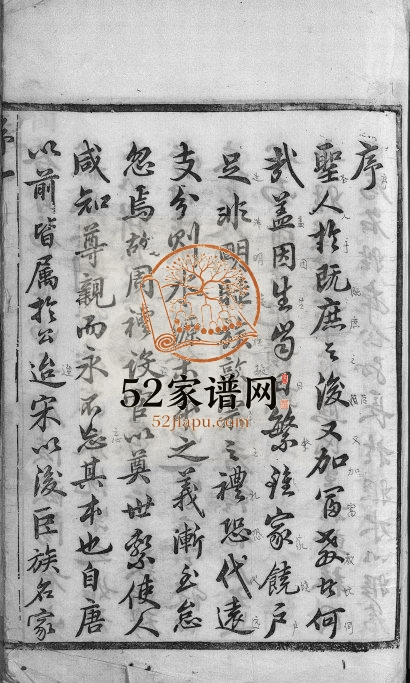 序
聖人於既庶之後又加富教者何
哉蓋因生齒日繁雖家饒戶
足非明 族 之禮恐代遠
支分則水源木本之義漸至怠
忽焉故周禮設官以奠世繫使人
咸知尊親而永不忘其本也自唐
以前皆属於公迨宋以後巨族名家
52家谱网
52jiapu.com